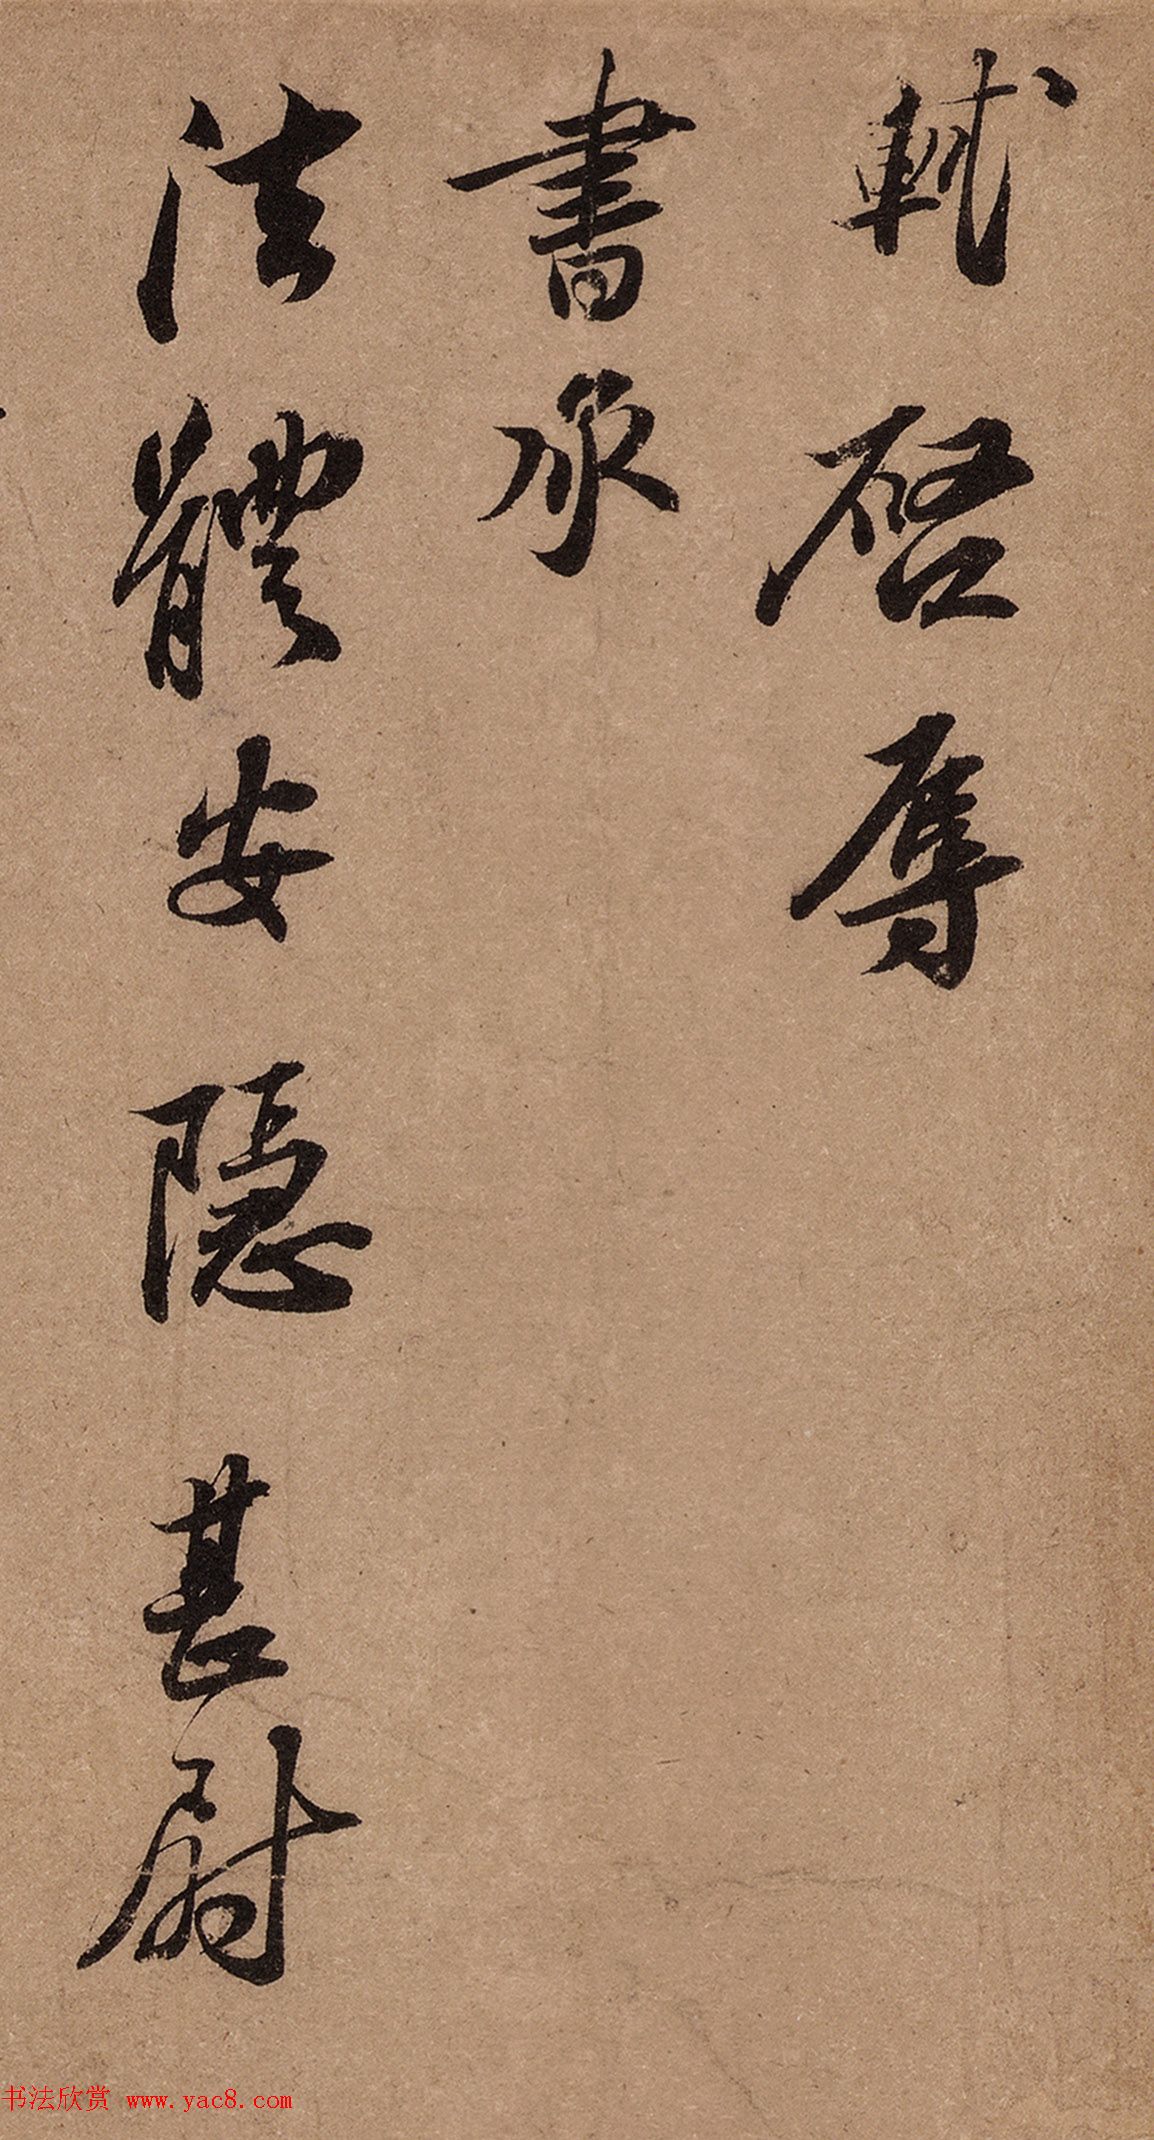 軾啓辱
書承
法體安隱甚尉
书法欣赏 www.yac8.com